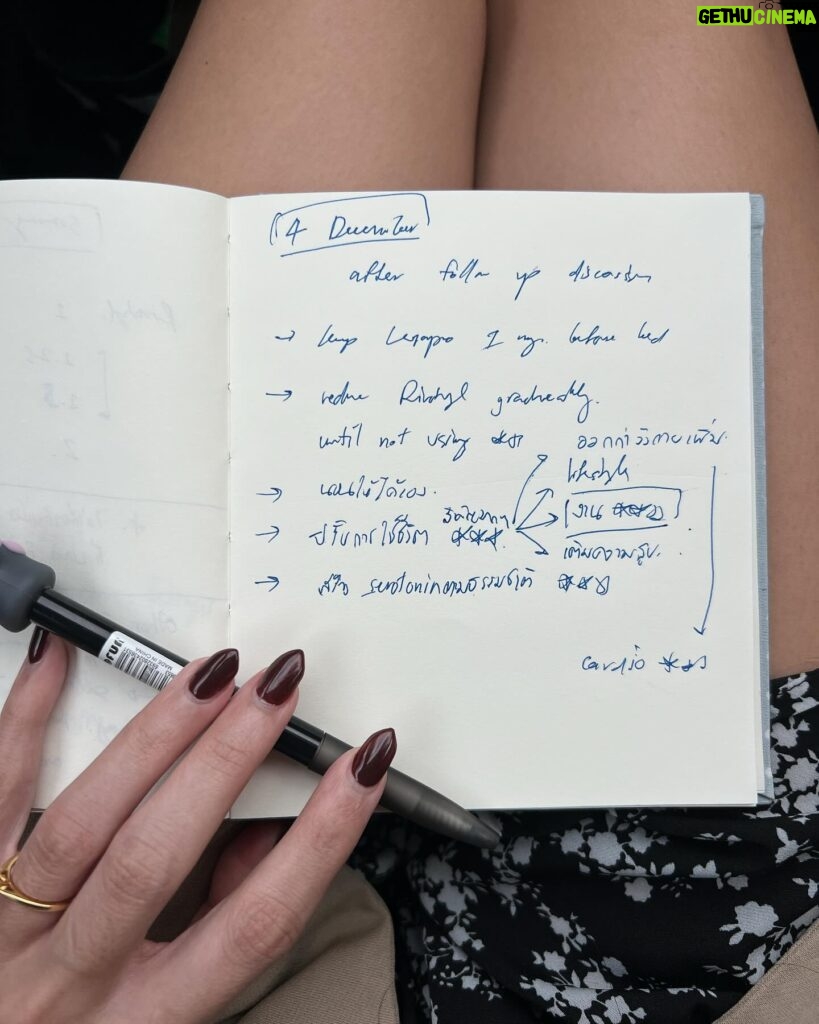 GETHUCINEMA
4 December
after follow up discussion
→ keep Lexapro 1 mg. before bed
→ reduce Rivotril gradually.
until not using
ออกกำลังกายเพิ่ม.
lifestyle
→ นอนให้ได้เอง.
งาน
→ ปรับการใช้ชีวิต
เติมความสุข.
→ สร้าง serotonin ตามธรรมชาติ
cardio
MADE IN CHINA